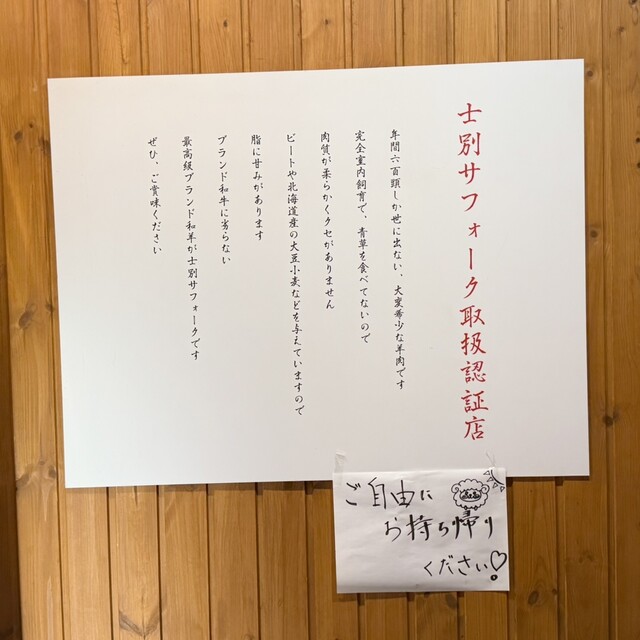 士別サフォーク取扱認証店
年間六百頭しか世に出ない、大変希少な羊肉です
完全室内飼育で、青草を食べてないので
肉質が柔らかくクセがありません
ビートや北海道産の大豆小麦などを与えていますので
脂に甘みがあります
ブランド和牛に劣らない
最高級ブランド和羊が士別サフォークです
ぜひ、ご賞味ください
ご自由に
お持ち帰り
ください♡